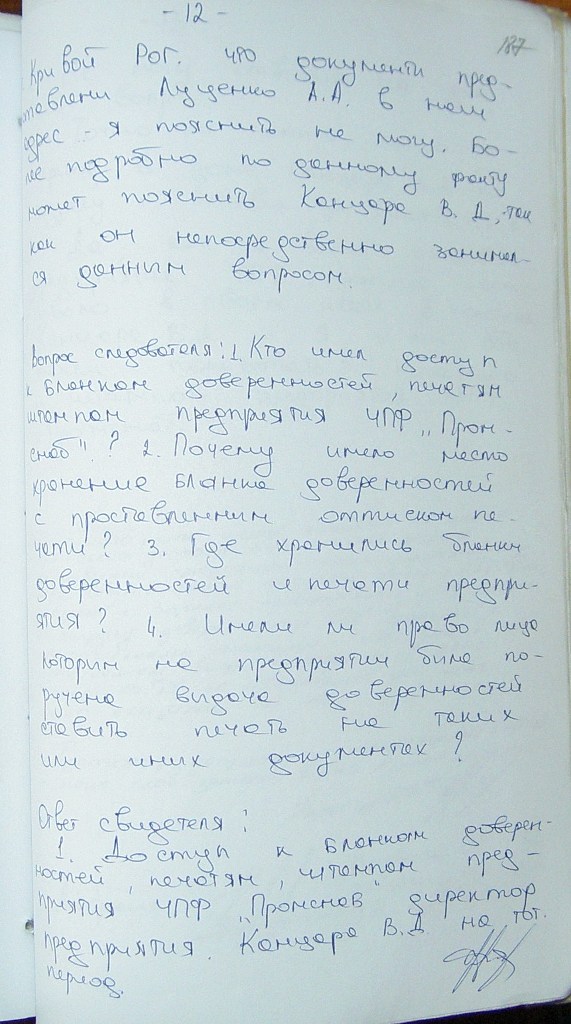 - 12 -
187
Кривой Рог. что документи пред-
ставлени Луценко А.А. в наш
адрес - я пояснить не могу. Бо-
лее подробно по данному факту
может пояснить Канцара В.Д, так
как он непосредственно занимал-
ся данним вопросом.
Вопрос следователя: 1. Кто имел доступ
к бланкам доверенностей, печатям
штампам предприятия ЧПФ „Пром-
снаб". ? 2. Почему имело место
хранение бланка доверенностей
с проставленним оттиском пе-
чати? 3. Где хранились бланки
доверенностей и печати предпри-
ятия? 4. Имели ли право лица
которим на предприятии била по-
ручена видача доверенностей
ставить печать на таких
или иних документах?
Ответ свидетеля:
1. Доступ к бланкам доверен-
ностей, печатям, штампам пред-
приятия ЧПФ „Промснаб" директор
предприятия. Канцара В.Д на тот.
период.